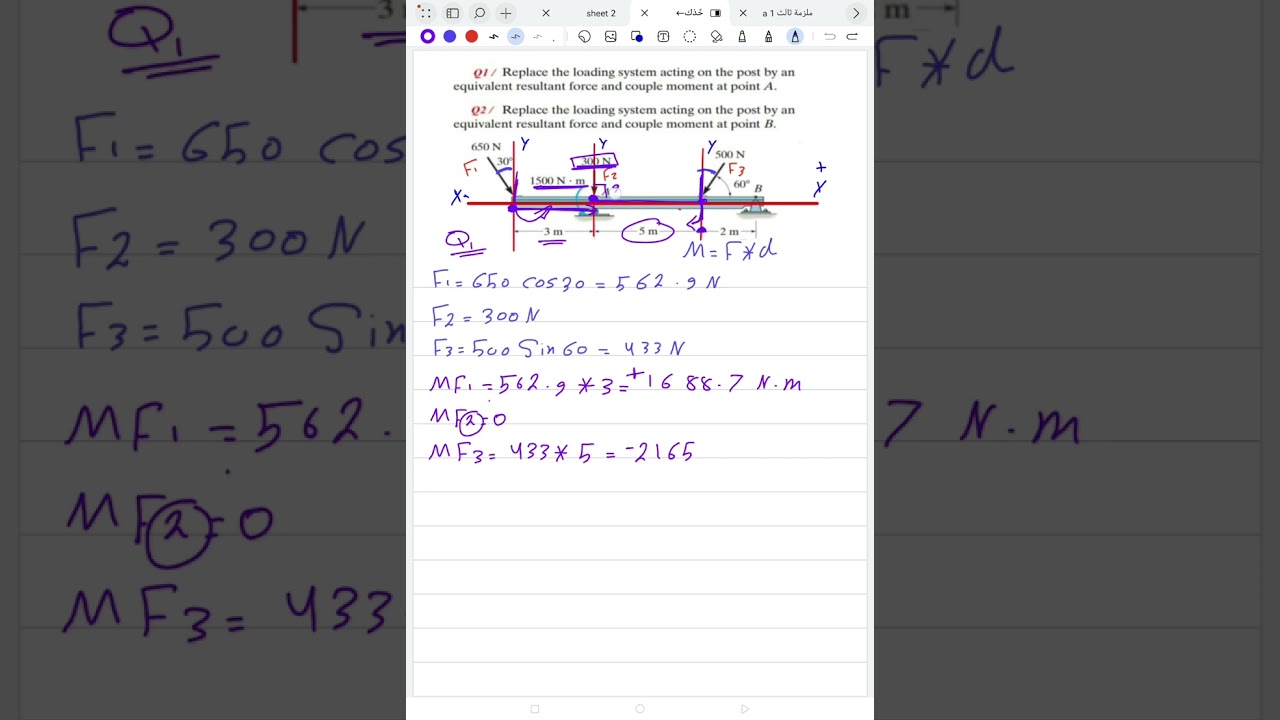 sheet 2
خذك←
ملزمة ثالث 1 a
Q1/ Replace the loading system acting on the post by an
equivalent resultant force and couple moment at point A.
Q2/ Replace the loading system acting on the post by an
equivalent resultant force and couple moment at point B.
650 N
Y
30°
F1
1500 N · m
Y
300 N
F2
A
Y
500 N
F3
60°
B
+
X
X-
3 m
5 m
2 m
Q1
M = F*d
F1= 650 cos30 = 562.9 N
F2 = 300 N
F3= 500 Sin60 = 433 N
MF1 = 562.9 *3= +1688.7 N.m
MF2=0
MF3= 433* 5 = -2165
3
m
Q1
F*d
F1= 650 cos
F2 = 300 N
F3= 500 Sin
MF1 = 562.
7 N.m
MF2=0
MF3= 433